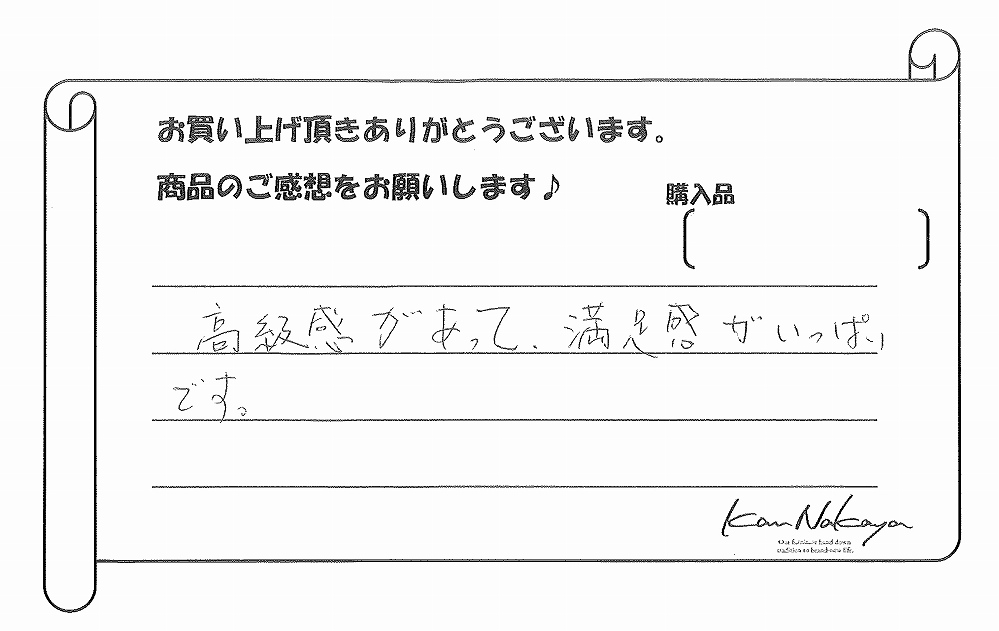 お買い上げ頂きありがとうございます。
商品のご感想をお願いします♪
購入品
高級感があって、満足感がいっぱい
です。
Kan Nakaya
Our furniture hand down
tradition to brand-new life.